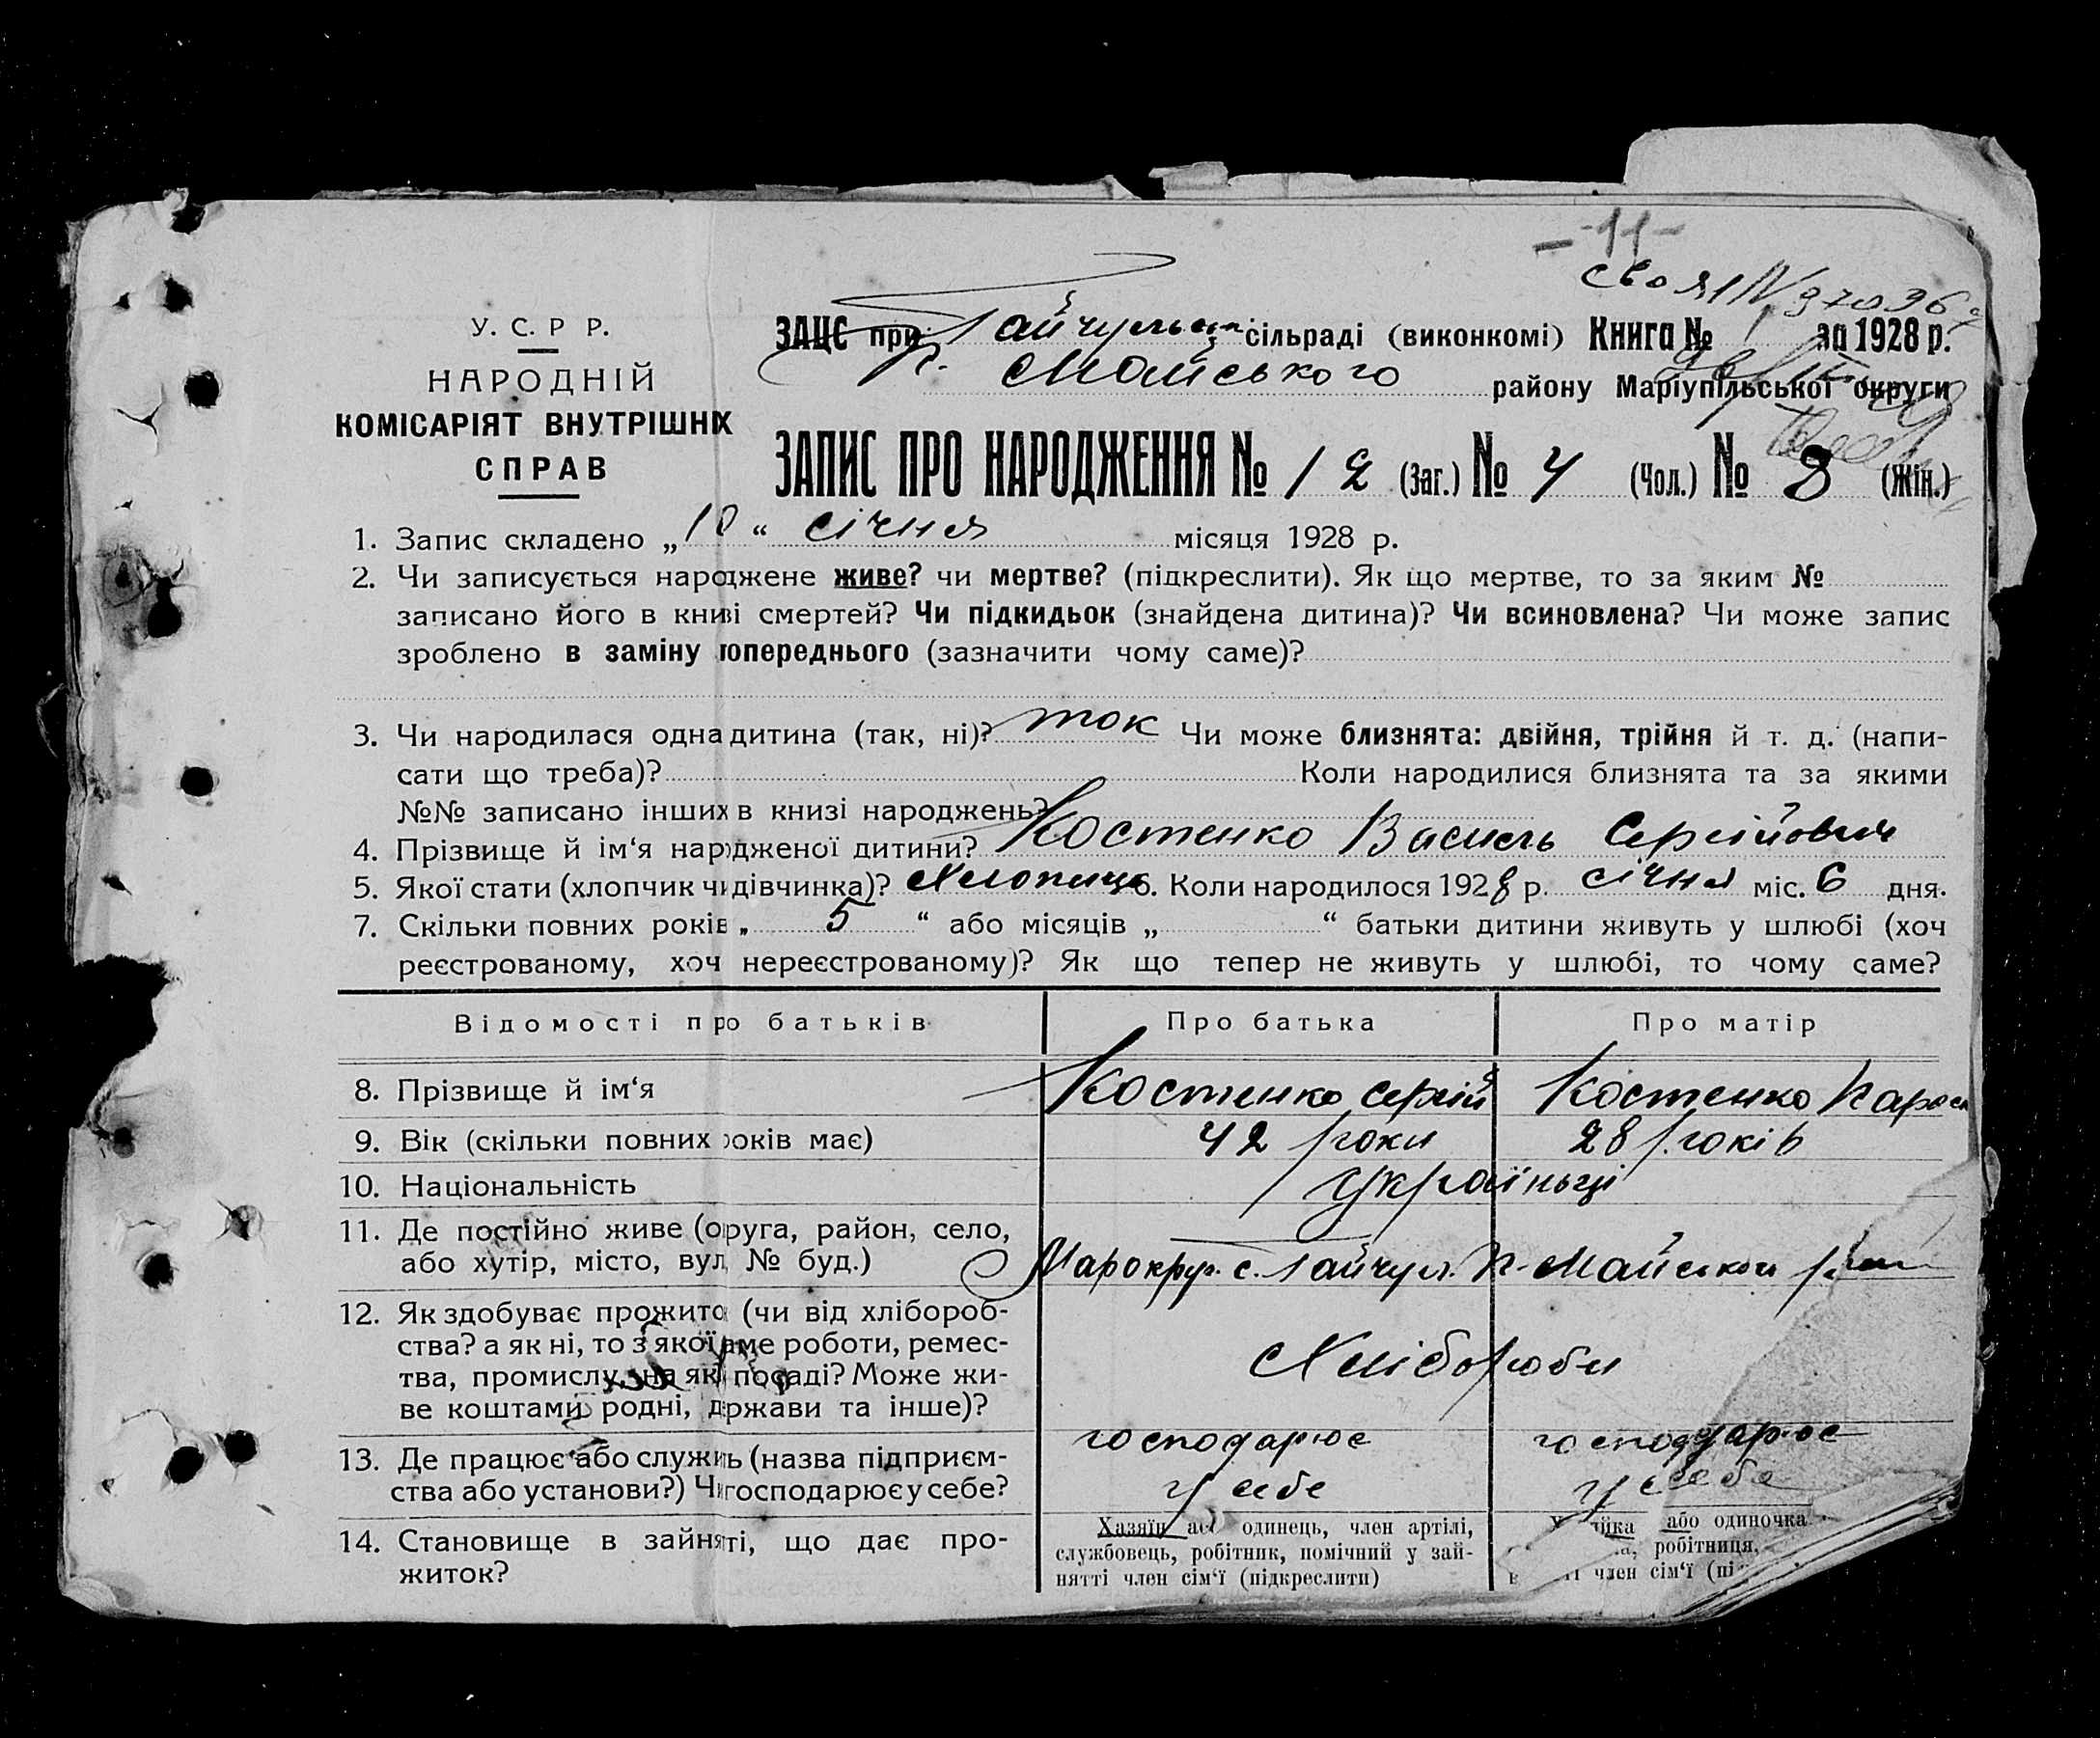 -11-
У. С. Р Р.
НАРОДНІЙ
КОМІСАРІЯТ ВНУТРІШНІХ
СПРАВ
ЗАЦС при Гайчульськ. сільраді (виконкомі) Книга № за 1928 р.
Н. Майського району Маріупільської округи
ЗАПИС ПРО НАРОДЖЕННЯ № 12 (Заг.) № 4 (Чол.) № 8 (Жін.)
1. Запис складено „10“ січня місяця 1928 р.
2. Чи записується народжене живе? чи мертве? (підкреслити). Як що мертве, то за яким №
записано його в книзі смертей? Чи підкидьок (знайдена дитина)? Чи всиновлена? Чи може запис
зроблено в заміну попереднього (зазначити чому саме)?
3. Чи народилася одна дитина (так, ні)? так Чи може близнята: двійня, трійня й т. д. (напи-
сати що треба)? Коли народилися близнята та за якими
№№ записано інших в книзі народжень?
4. Прізвище й ім‘я народженої дитини? Костенко Василь Сергійович
5. Якої стати (хлопчик чи дівчинка)? Хлопиць 6. Коли народилося 1928 р. січня міс. 6 дня.
7. Скільки повних років „ 5 “ або місяців „ “ батьки дитини живуть у шлюбі (хоч
реєстрованому, хоч нереєстрованому)? Як що тепер не живуть у шлюбі, то чому саме?
Відомості про батьків Про батька Про матір
8. Прізвище й ім‘я Костенко Сергій Костенко Параск
9. Вік (скільки повних років має) 42 роки 28 років
10. Національність Українці
11. Де постійно живе (округа, район, село,
або хутір, місто, вул. № буд.) Марокруг. с. Гайчул. Н-Майський
12. Як здобуває прожиток (чи від хлібороб-
ства? а як ні, то з якої саме роботи, ремес-
тва, промислу, на якій посаді? Може жи-
ве коштами родні, держави та інше)?
Хлібороби
13. Де працює або служить (назва підприєм-
ства або установи?) Чи господарює у себе?
господарює господарює
у себе у себе
14. Становище в зайнятті, що дає про-
житок?
Хазяїн або одинець, член артілі,
службовець, робітник, помічний у зай-
нятті член сім‘ї (підкреслити)
або одиночка
робітниця,
член сім‘ї